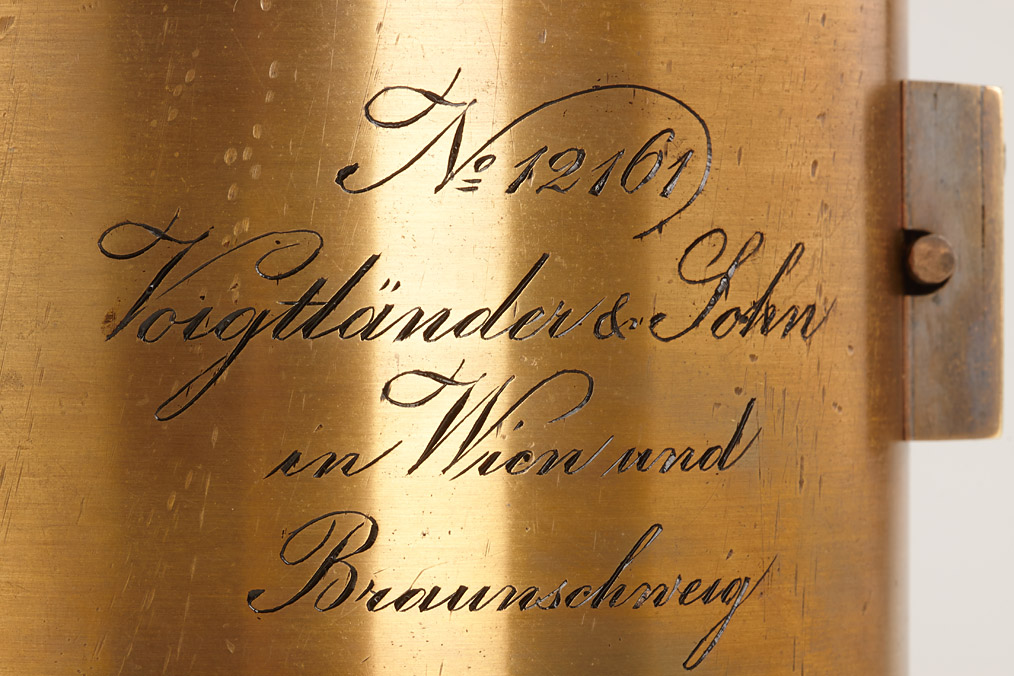 No 12161
Voigtländer & Sohn
in Wien und
Braunschweig